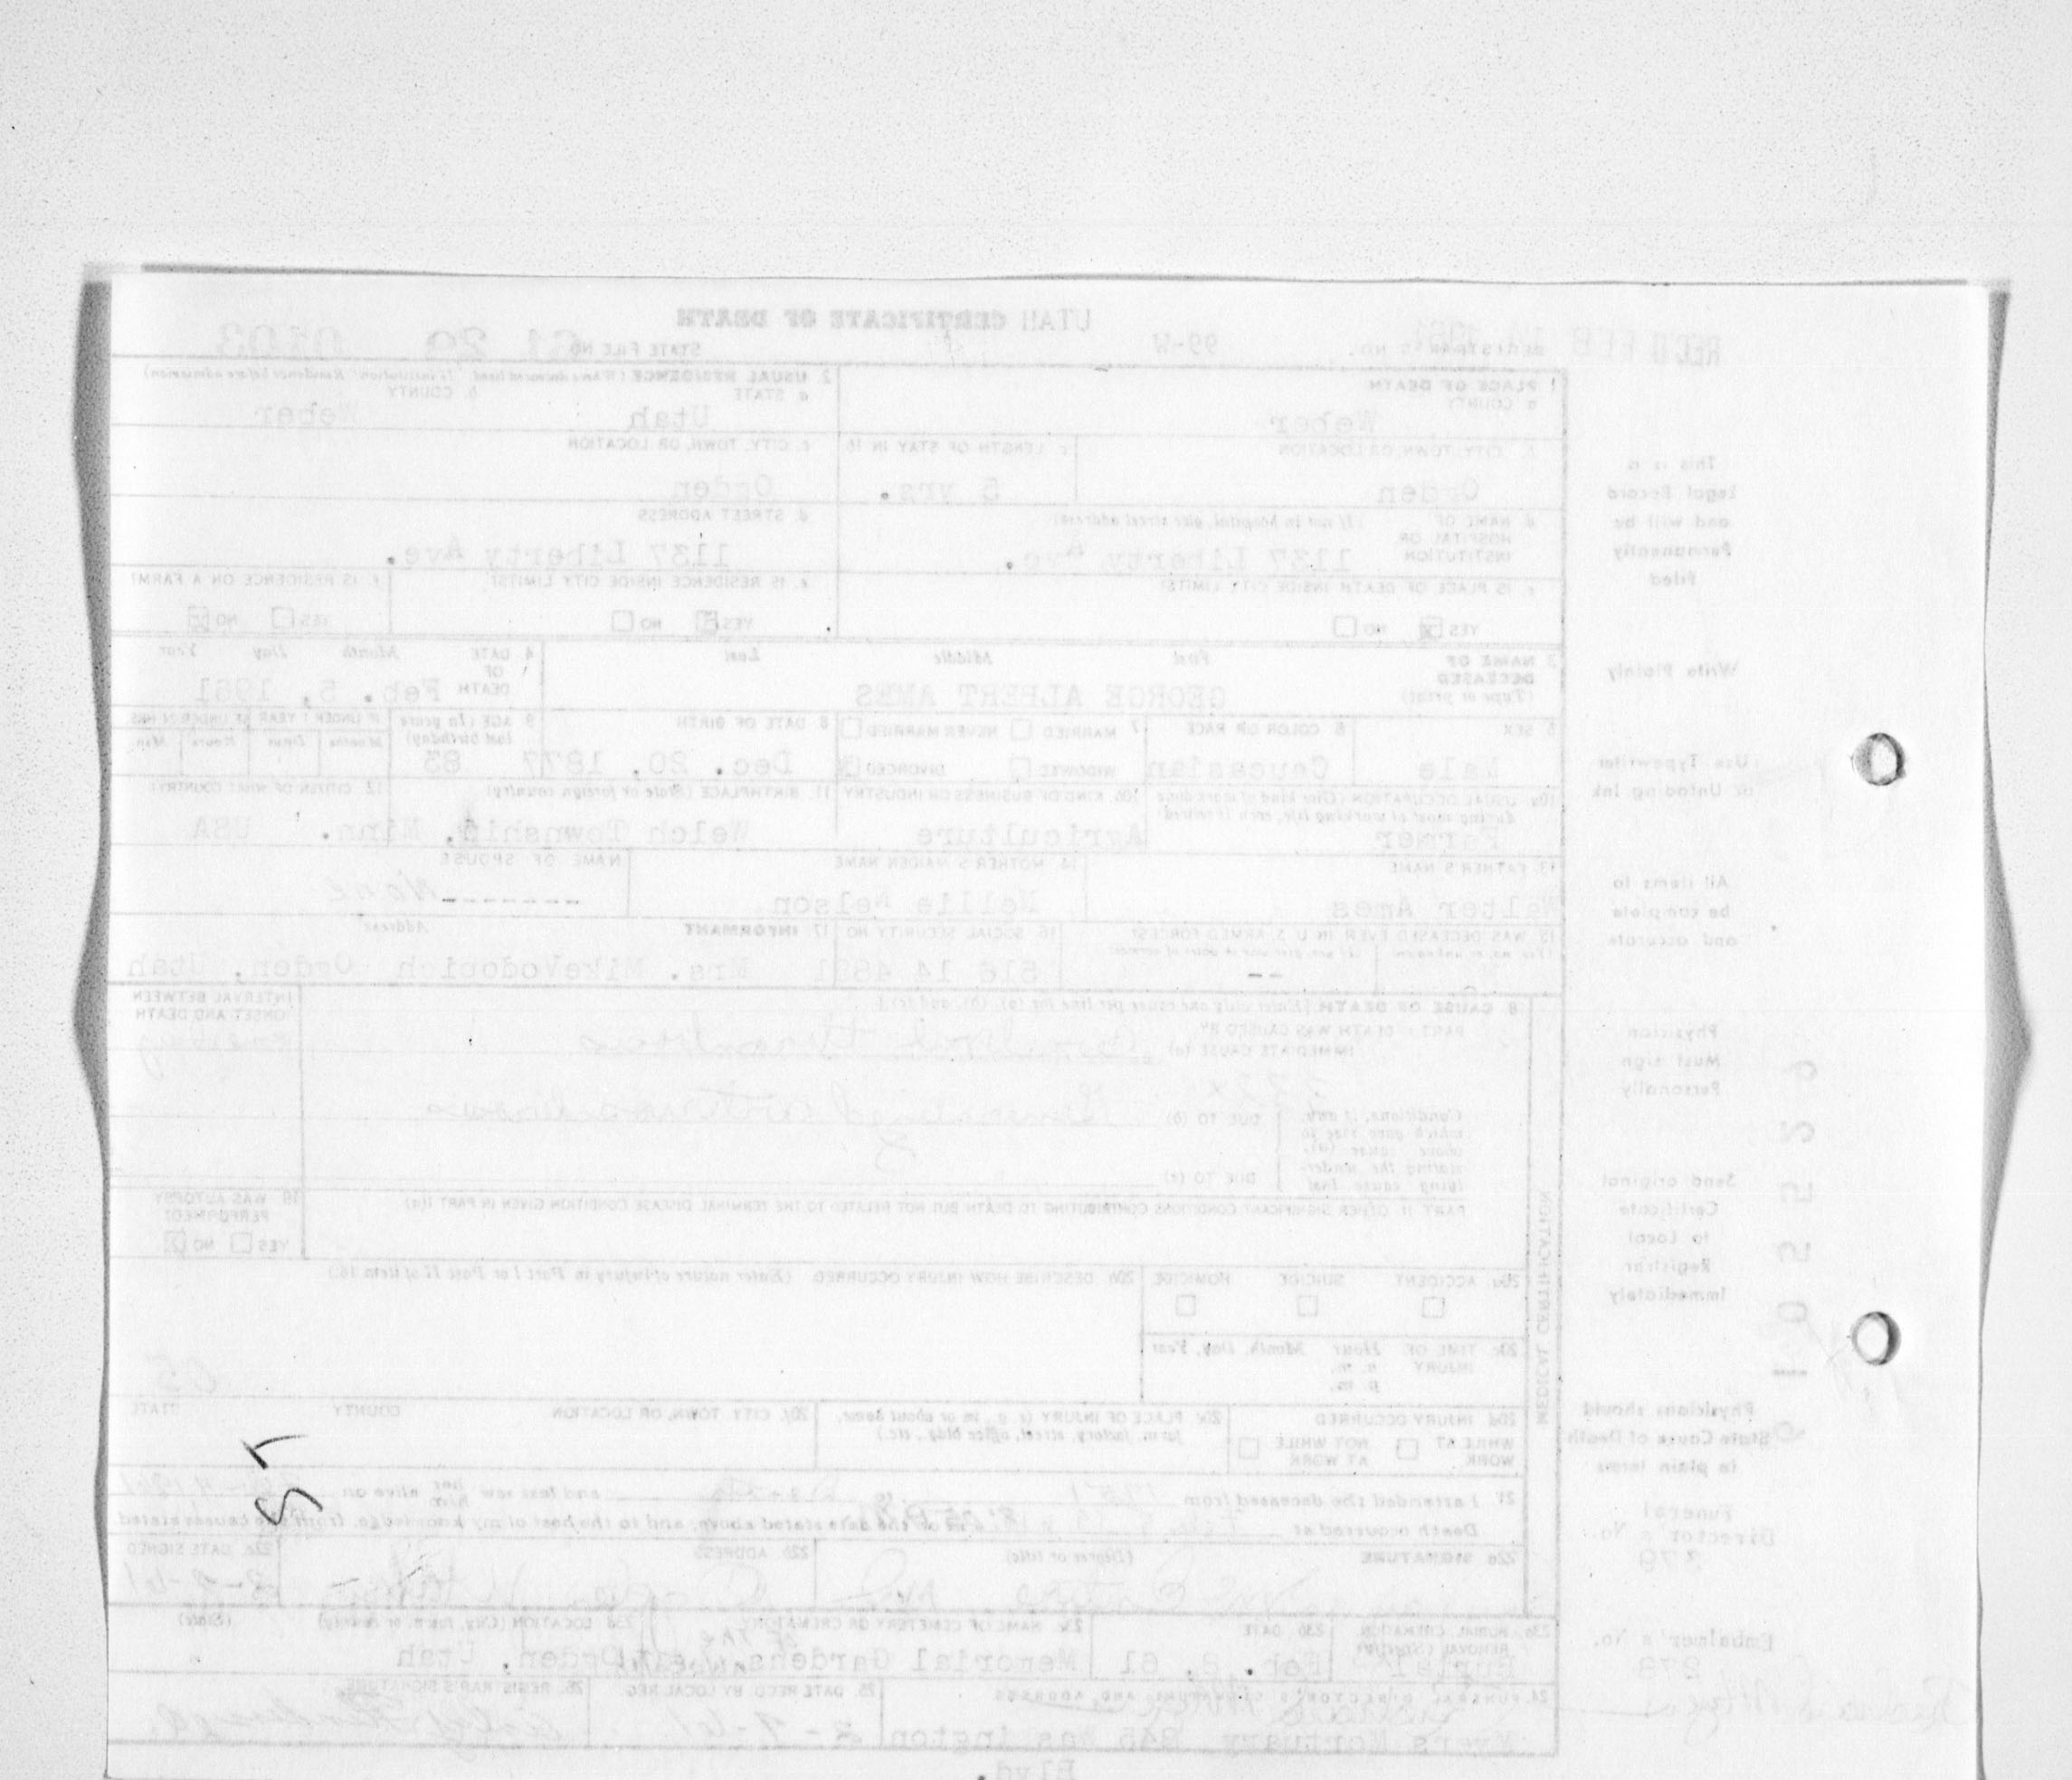 UTAH CERTIFICATE OF DEATH
REC'D FEB 1961
REGISTRAR'S NO. 99-W
STATE FILE NO. 61 29 0103
1 PLACE OF DEATH
a COUNTY
Weber
2. USUAL RESIDENCE (Where deceased lived. If institution: Residence before admission)
a STATE
Utah
b. COUNTY
Weber
b. CITY, TOWN, OR LOCATION
Ogden
c LENGTH OF STAY IN 1b
5 yrs.
c. CITY, TOWN, OR LOCATION
Ogden
d. NAME OF HOSPITAL OR INSTITUTION (If not in hospital, give street address)
1137 Liberty Ave.
d. STREET ADDRESS
1137 Liberty Ave.
e IS PLACE OF DEATH INSIDE CITY LIMITS?
YES NO
e. IS RESIDENCE INSIDE CITY LIMITS?
YES NO
f. IS RESIDENCE ON A FARM?
YES NO
3 NAME OF DECEASED (Type or print)
First Middle Last
GEORGE ALBERT AMES
4 DATE OF DEATH
Month Day Year
Feb. 5, 1961
5 SEX
Male
6 COLOR OR RACE
Caucasian
7 MARRIED NEVER MARRIED
WIDOWED DIVORCED
8 DATE OF BIRTH
Dec. 20, 1877
9 AGE (In years last birthday)
83
IF UNDER 1 YEAR IF UNDER 24 HRS
Months Days Hours Min
10a USUAL OCCUPATION (Give kind of work done during most of working life, even if retired)
Farmer
10b. KIND OF BUSINESS OR INDUSTRY
Agriculture
11. BIRTHPLACE (State or foreign country)
Welch Township, Minn.
12. CITIZEN OF WHAT COUNTRY?
USA
13. FATHER'S NAME
Walter Ames
14. MOTHER'S MAIDEN NAME
Nellie Nelson
NAME OF SPOUSE
-------None
15. WAS DECEASED EVER IN U. S. ARMED FORCES?
--
16. SOCIAL SECURITY NO.
17. INFORMANT Address
Mrs. Mike Vodopich Ogden, Utah
18. CAUSE OF DEATH [Enter only one cause per line for (a), (b), and (c).]
PART I. DEATH WAS CAUSED BY
IMMEDIATE CAUSE (a) Cerebral thrombosis
INTERVAL BETWEEN ONSET AND DEATH
332X
Conditions, if any, which gave rise to above cause (a), stating the underlying cause last
DUE TO (b) Generalized arteriosclerosis
DUE TO (c)
PART II. OTHER SIGNIFICANT CONDITIONS CONTRIBUTING TO DEATH BUT NOT RELATED TO THE TERMINAL DISEASE CONDITION GIVEN IN PART I(a)
19. WAS AUTOPSY PERFORMED?
YES NO
MEDICAL CERTIFICATION
20a ACCIDENT SUICIDE HOMICIDE
20b. DESCRIBE HOW INJURY OCCURRED (Enter nature of injury in Part I or Part II of item 18.)
20c TIME OF INJURY Hour Month, Day, Year
a. m.
p. m.
20d INJURY OCCURRED
WHILE AT WORK NOT WHILE AT WORK
20e. PLACE OF INJURY (e. g., in or about home, farm, factory, street, office bldg., etc.)
20f. CITY, TOWN, OR LOCATION COUNTY STATE
21. I attended the deceased from to and last saw him alive on
Death occurred at m on the date stated above, and to the best of my knowledge, from the causes stated.
22a SIGNATURE (Degree or title)
22b. ADDRESS
22c. DATE SIGNED
23a. BURIAL, CREMATION, REMOVAL (Specify)
Burial
23b. DATE
Feb. 8, 61
23c. NAME OF CEMETERY OR CREMATORY
Memorial Gardens of the Wasatch
23d LOCATION (City, town, or county) (State)
Ogden, Utah
24. FUNERAL DIRECTOR'S SIGNATURE AND ADDRESS
Myers Mortuary 845 Washington Blvd.
25. DATE REC'D BY LOCAL REG.
2-9-61
26. REGISTRAR'S SIGNATURE
This is a
Legal Record
and will be
Permanently
Filed
Write Plainly
Use Typewriter
or Unfading Ink
All items to
be complete
and accurate
Physician
Must sign
Personally
Send original
Certificate
to Local
Registrar
Immediately
Physicians should
State Cause of Death
in plain terms
Funeral
Director's No.
379
Embalmer's No.